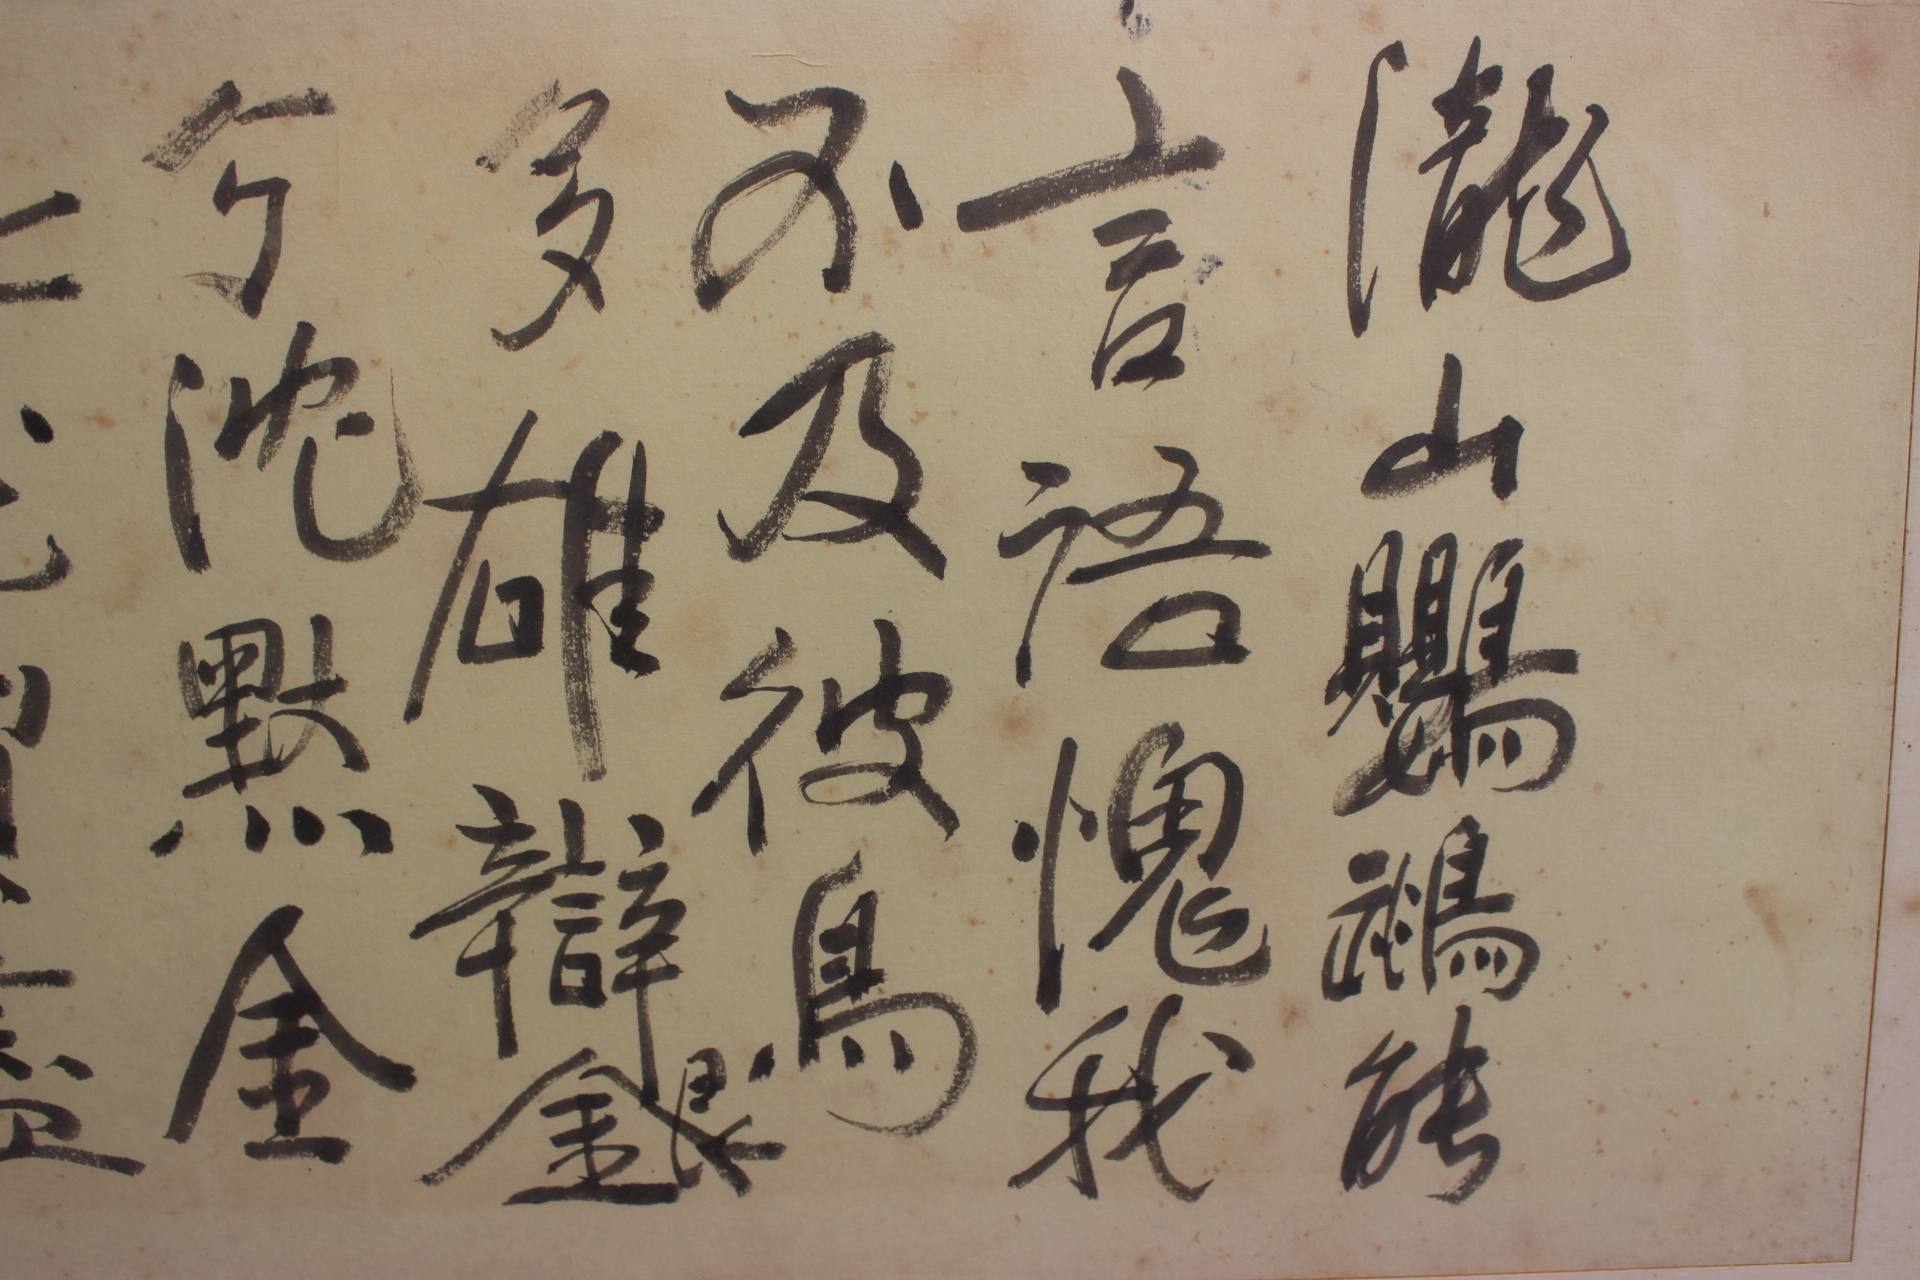 瀧山鸚鵡能
言語愧我
不及彼鳥
多雄辯銀
兮沈默金